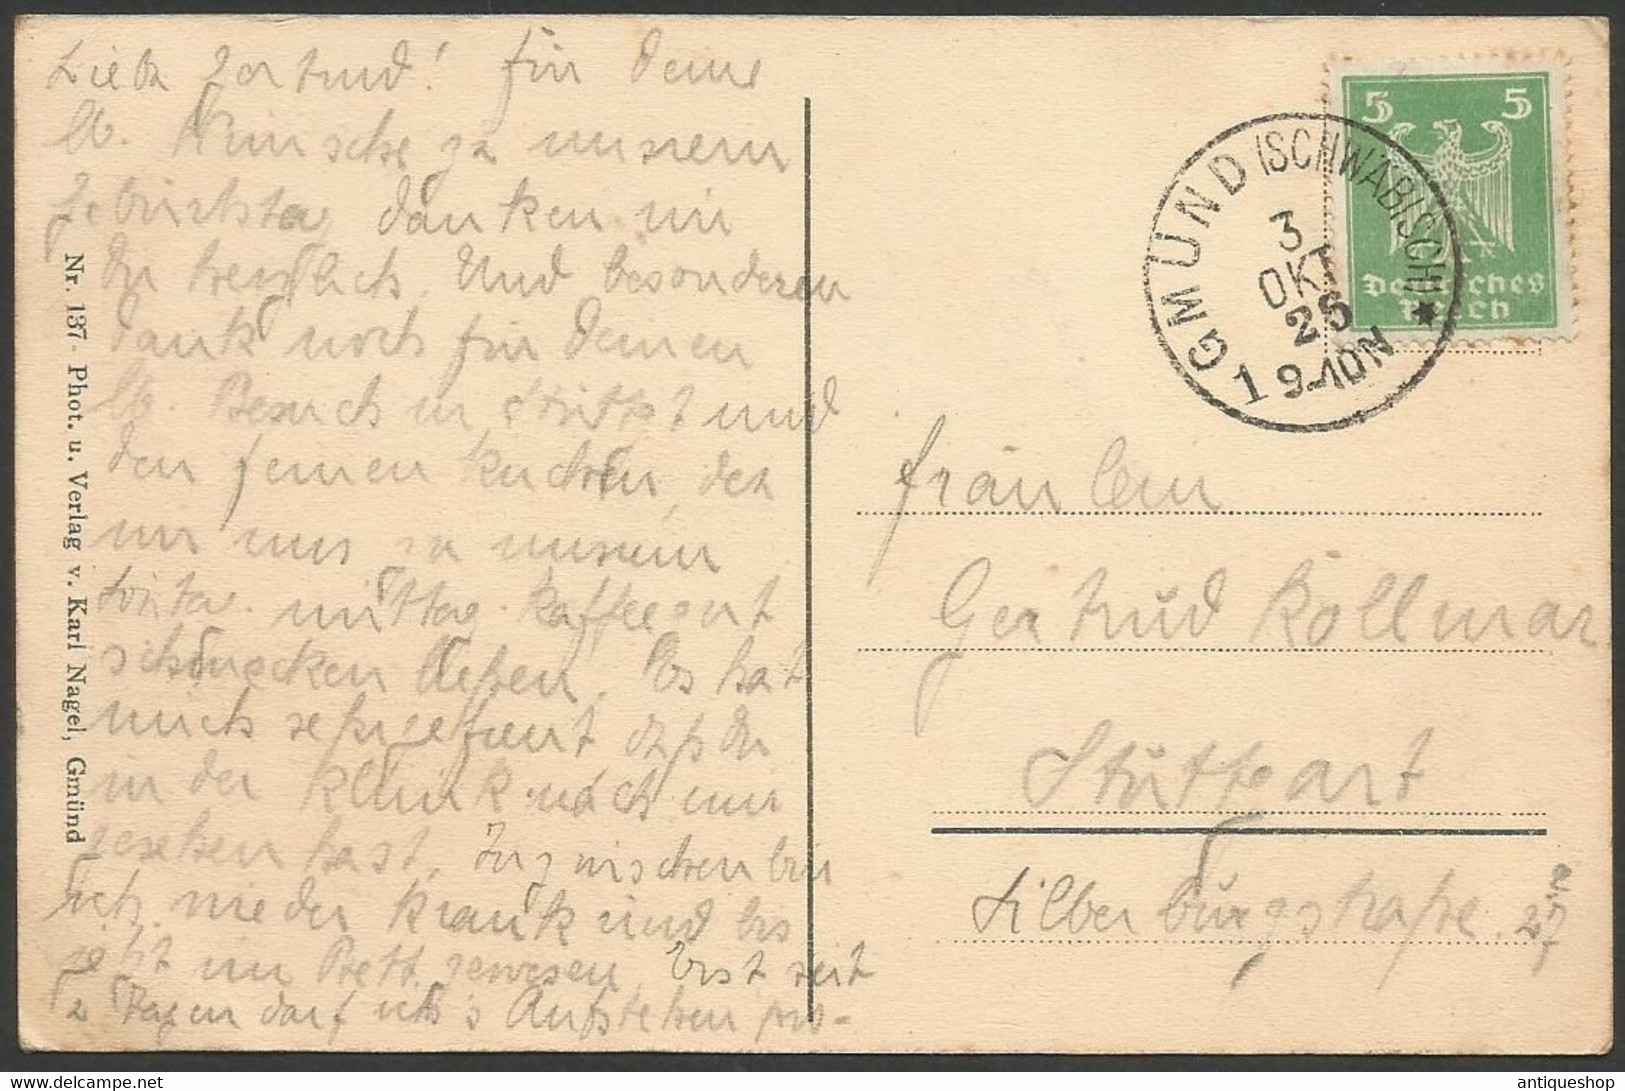 Liebe Gertrud! für Deine
lb. Wünsche zu unserem
Geburtstag danken wir
Dir herzlich. Und besonderen
Dank noch für Deinen
lb. Besuch in Stuttgt und
den feinen Kuchen, den
wir uns zu unserem
Sonntag mittag Kaffee gut
schmecken ließen. Es hat
mich sehr gefreut daß Du
in der Klinik nach mir
gesehen hast. Inzwischen bin
ich wieder krank und bis
jetzt im Bett gewesen. Erst seit
2 Tagen darf ich's Aufstehen pro-
Nr. 137. Phot. u. Verlag v. Karl Nagel, Gmünd
5 5
Deutsches
Reich
GMÜND (SCHWÄBISCH)
3
OKT
26
1 9-10N
Fräulein
Gertrud Kollmar
Stuttgart
Silberburgstraße
antiqueshop